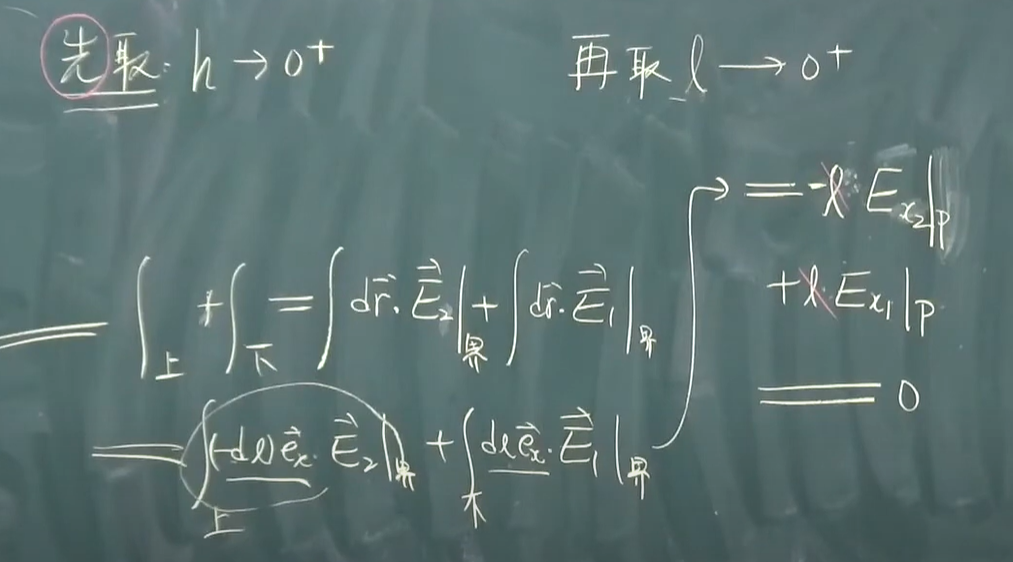 先取: h → 0⁺
再取 l → 0⁺
= ∫_上 + ∫_下 = ∫ d\vec{r}·\vec{E}_2|_界 + ∫ d\vec{r}·\vec{E}_1|_界
= ∫_上 (-dl)\vec{e}_x·\vec{E}_2|_界 + ∫_下 dl\vec{e}_x·\vec{E}_1|_界
→ = -l·E_{x_2}|_P
+l·E_{x_1}|_P
= 0